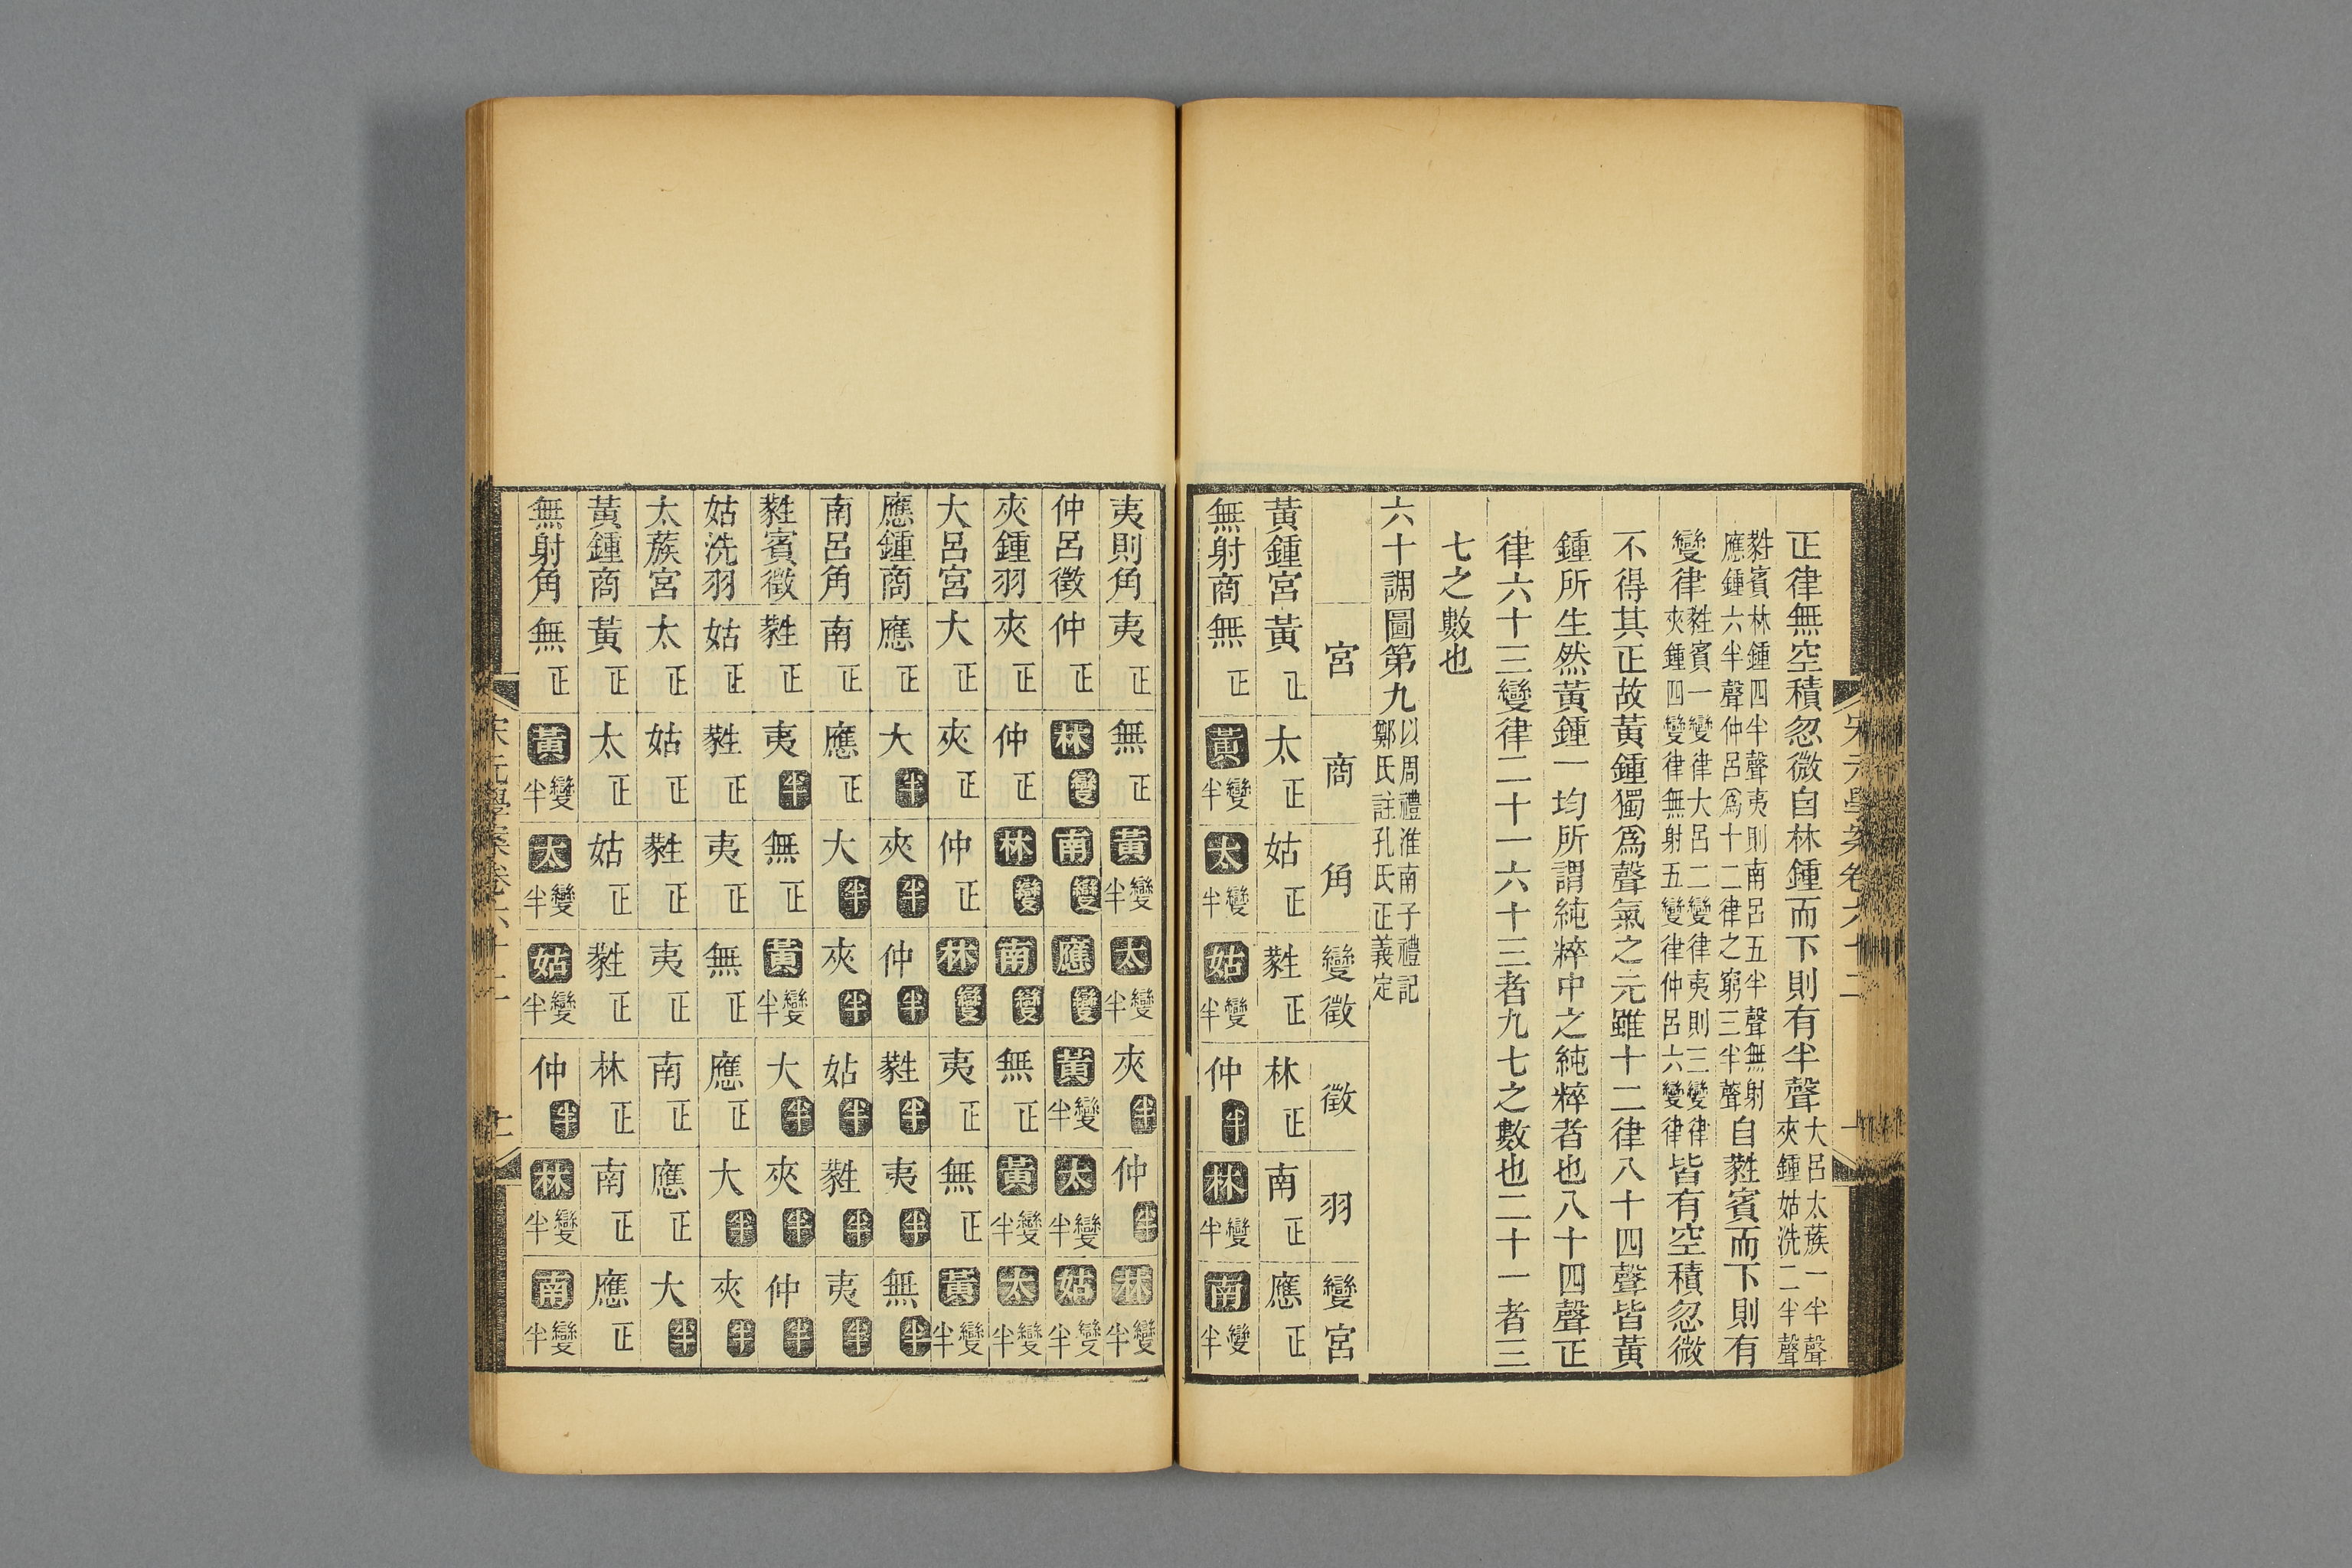 正律無空積忽微自林鍾而下則有半聲大呂太蔟一半聲夾鍾姑洗二半聲
蕤賓林鍾四半聲夷則南呂五半聲無射應鍾六半聲仲呂爲十二律之窮三半聲自蕤賓而下則有
變律蕤賓一變律大呂二變律夷則三變律夾鍾四變律無射五變律仲呂六變律皆有空積忽微
不得其正故黃鍾獨爲聲氣之元雖十二律八十四聲皆黃
鍾所生然黃鍾一均所謂純粹中之純粹者也八十四聲正
律六十三變律二十一六十三者九七之數也二十一者三
七之數也
六十調圖第九以周禮淮南子禮記鄭氏註孔氏正義定
宮 商 角 變徵 徵 羽 變宮
黃鍾宮 黃正 太正 姑正 蕤正 林正 南正 應正
無射商 無正 黃變半 太變半 姑變半 仲半 林變半 南變半
夷則角 夷正 無正 黃變半 太變半 夾半 仲半 林變半
仲呂徵 仲正 林變 南變 應變 黃變半 太變半 姑變半
夾鍾羽 夾正 仲正 林變 南變 無正 黃變半 太變半
大呂宮 大正 夾正 仲正 林變 夷正 無正 黃變半
應鍾商 應正 大半 夾半 仲半 蕤半 夷半 無半
南呂角 南正 應正 大半 夾半 姑半 蕤半 夷半
蕤賓徵 蕤正 夷半 無正 黃變半 大半 夾半 仲半
姑洗羽 姑正 蕤正 夷正 無正 應正 大半 夾半
太蔟宮 太正 姑正 蕤正 夷正 南正 應正 大半
黃鍾商 黃正 太正 姑正 蕤正 林正 南正 應正
無射角 無正 黃變半 太變半 姑變半 仲半 林變半 南變半
宋元學案卷六十二
十一